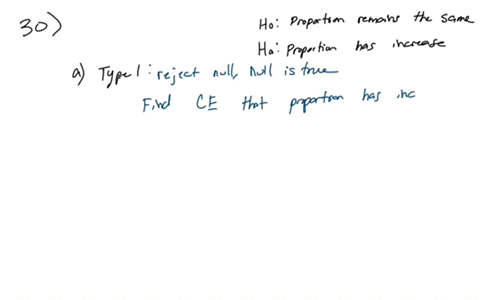 30)
Ho: Proportion remains the same
Ha: Proportion has increase
a) Type 1: reject null, null is true
Find CE that proportion has inc